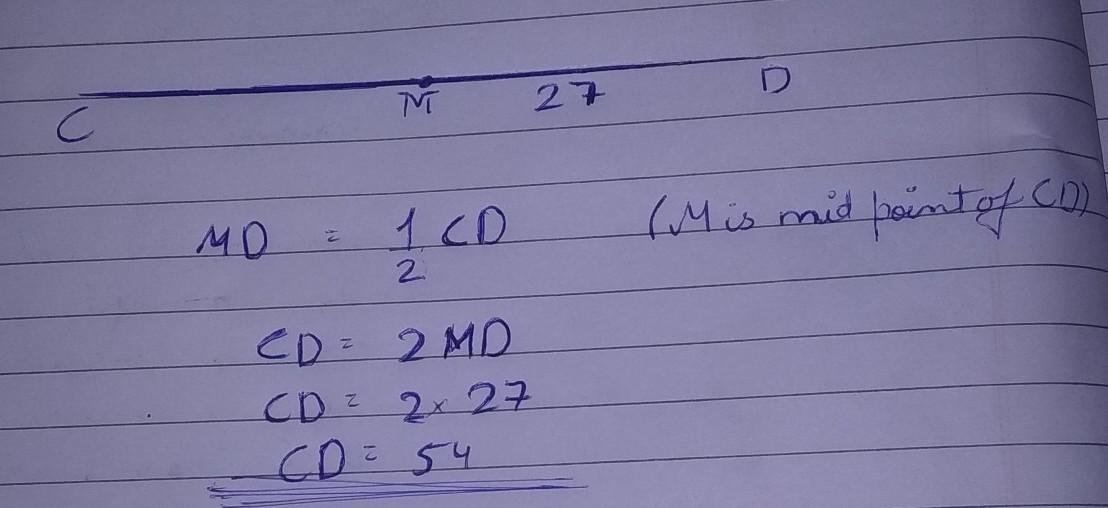 C M 27 D
MD = 1/2 CD (M is mid point of CD)
CD = 2 MD
CD = 2 × 27
CD = 54